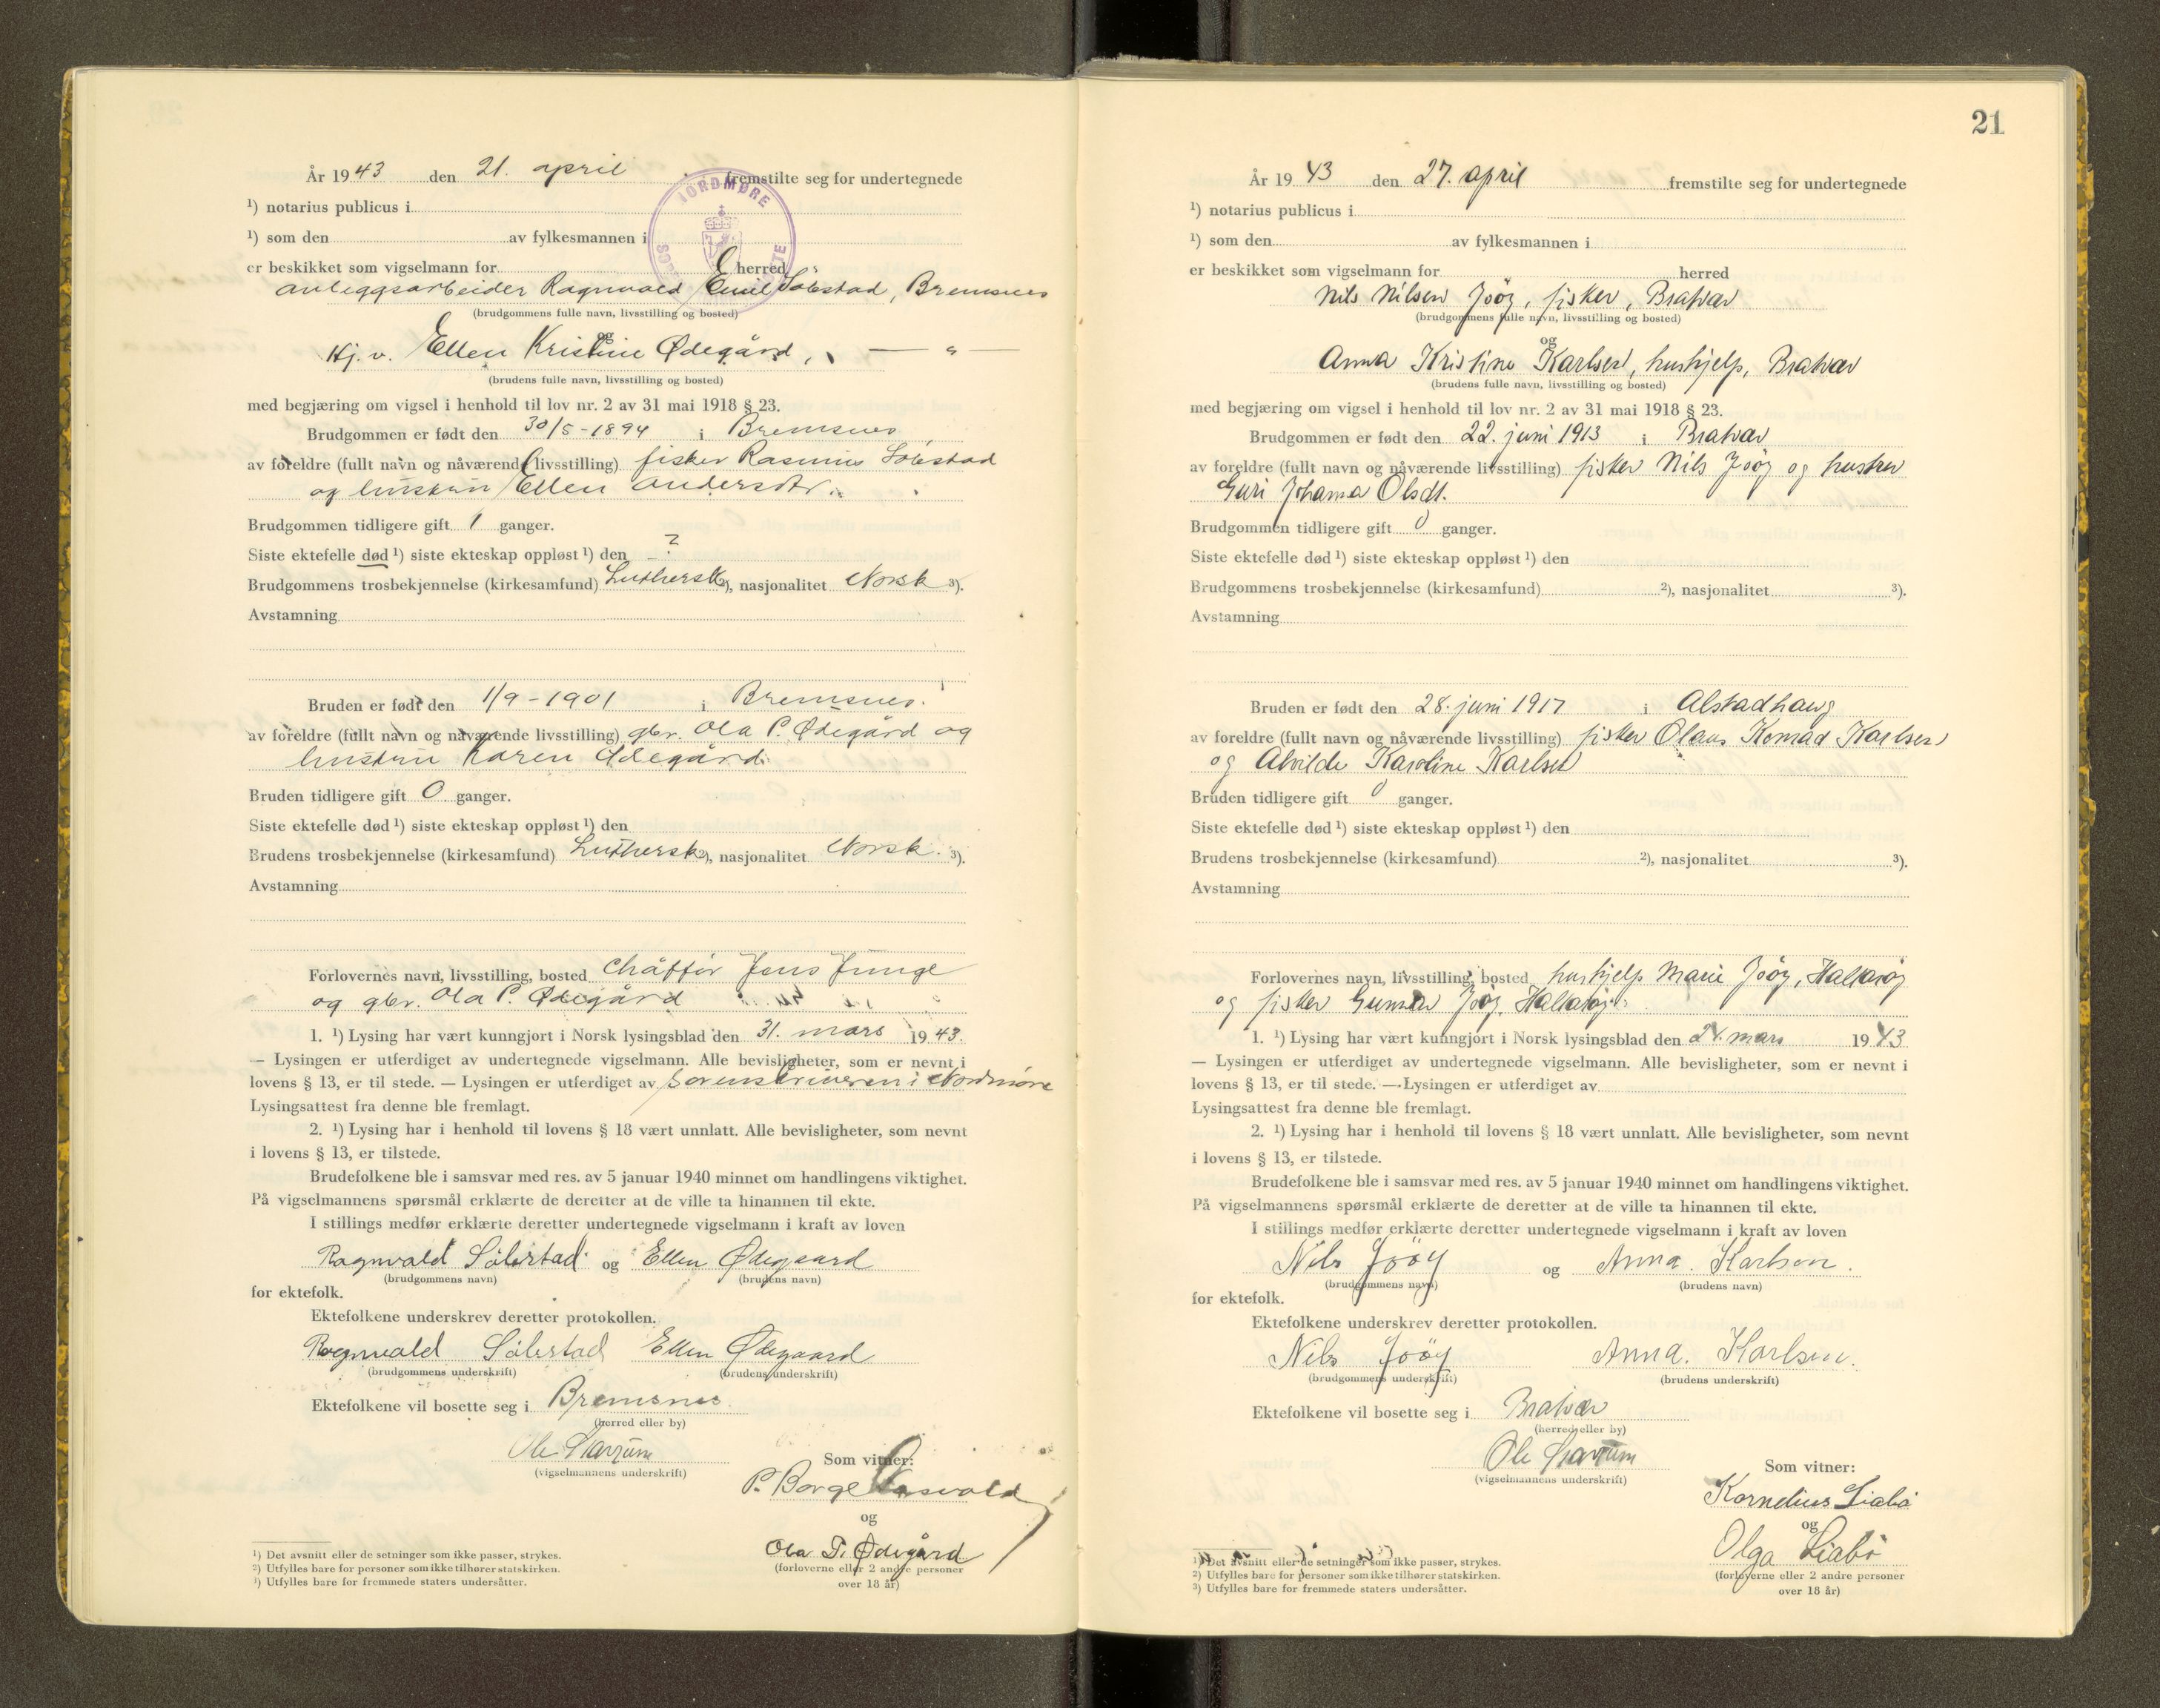 År 1943 den 21. april fremstilte seg for undertegnede
¹) notarius publicus i
¹) som den av fylkesmannen i
er beskikket som vigselmann for herred
anleggsarbeider Ragnvald Emil Sålestad, Bremsnes
(brudgommens fulle navn, livsstilling og bosted)
og
Hj. v. Ellen Kristine Ødegård, — " —
(brudens fulle navn, livsstilling og bosted)
med begjæring om vigsel i henhold til lov nr. 2 av 31 mai 1918 § 23.
Brudgommen er født den 30/5-1894 i Bremsnes
av foreldre (fullt navn og nåværende livsstilling) fisker Rasmus Sålestad
og hustru Ellen Andersdtr.
Brudgommen tidligere gift 1 ganger.
Siste ektefelle død ¹) siste ekteskap oppløst ¹) den ?
Brudgommens trosbekjennelse (kirkesamfund) Luthersk ²), nasjonalitet Norsk ³).
Avstamning
Bruden er født den 1/9-1901 i Bremsnes.
av foreldre (fullt navn og nåværende livsstilling) gbr. Ola P. Ødegård og
hustru Karen Ødegård.
Bruden tidligere gift 0 ganger.
Siste ektefelle død ¹) siste ekteskap oppløst ¹) den
Brudens trosbekjennelse (kirkesamfund) Luthersk ²), nasjonalitet Norsk. ³).
Avstamning
Forlovernes navn, livsstilling, bosted Chåffør Jens Junge
og gbr. Ola P. Ødegård
1. ¹) Lysing har vært kunngjort i Norsk lysingsblad den 31. mars 1943.
— Lysingen er utferdiget av undertegnede vigselmann. Alle bevisligheter, som er nevnt i
lovens § 13, er til stede. — Lysingen er utferdiget av Sorenskriveren i Nordmøre
Lysingsattest fra denne ble fremlagt.
2. ¹) Lysing har i henhold til lovens § 18 vært unnlatt. Alle bevisligheter, som nevnt
i lovens § 13, er tilstede.
Brudefolkene ble i samsvar med res. av 5 januar 1940 minnet om handlingens viktighet.
På vigselmannens spørsmål erklærte de deretter at de ville ta hinannen til ekte.
I stillings medfør erklærte deretter undertegnede vigselmann i kraft av loven
Ragnvald Sålestad og Ellen Ødegaard
(brudgommens navn) (brudens navn)
for ektefolk.
Ektefolkene underskrev deretter protokollen.
Ragnvald Sålestad Ellen Ødegaard
(brudgommens underskrift) (brudens underskrift)
Ektefolkene vil bosette seg i Bremsnes
(herred eller by)
Ole
(vigselmannens underskrift)
Som vitner:
P. Borge
og
Ola P. Ødegård
(forloverne eller 2 andre personer
over 18 år)
¹) Det avsnitt eller de setninger som ikke passer, strykes.
²) Utfylles bare for personer som ikke tilhører statskirken.
³) Utfylles bare for fremmede staters undersåtter.
21
År 1943 den 27. april fremstilte seg for undertegnede
¹) notarius publicus i
¹) som den av fylkesmannen i
er beskikket som vigselmann for herred
Nils Nilsen Jöøy, fisker, Bratvær
(brudgommens fulle navn, livsstilling og bosted)
og
Anna Kristine Karlsen, hushjelp, Bratvær
(brudens fulle navn, livsstilling og bosted)
med begjæring om vigsel i henhold til lov nr. 2 av 31 mai 1918 § 23.
Brudgommen er født den 22. juni 1913 i Bratvær
av foreldre (fullt navn og nåværende livsstilling) fisker Nils Jöøy og hustru
Guri Johanna Olsdt.
Brudgommen tidligere gift 0 ganger.
Siste ektefelle død ¹) siste ekteskap oppløst ¹) den
Brudgommens trosbekjennelse (kirkesamfund) ²), nasjonalitet ³).
Avstamning
Bruden er født den 28. juni 1917 i Alstadhaug
av foreldre (fullt navn og nåværende livsstilling) fisker Olaus Konrad Karlsen
og Alvilde Karoline Karlsen
Bruden tidligere gift 0 ganger.
Siste ektefelle død ¹) siste ekteskap oppløst ¹) den
Brudens trosbekjennelse (kirkesamfund) ²), nasjonalitet ³).
Avstamning
Forlovernes navn, livsstilling, bosted hushjelp Marie Jöøy,
og fisker Gunnar Jöøy,
1. ¹) Lysing har vært kunngjort i Norsk lysingsblad den 24. mars 1943
— Lysingen er utferdiget av undertegnede vigselmann. Alle bevisligheter, som er nevnt i
lovens § 13, er til stede. — Lysingen er utferdiget av
Lysingsattest fra denne ble fremlagt.
2. ¹) Lysing har i henhold til lovens § 18 vært unnlatt. Alle bevisligheter, som nevnt
i lovens § 13, er tilstede.
Brudefolkene ble i samsvar med res. av 5 januar 1940 minnet om handlingens viktighet.
På vigselmannens spørsmål erklærte de deretter at de ville ta hinannen til ekte.
I stillings medfør erklærte deretter undertegnede vigselmann i kraft av loven
Nils Jöøy og Anna. Karlsen.
(brudgommens navn) (brudens navn)
for ektefolk.
Ektefolkene underskrev deretter protokollen.
Nils Jöøy Anna. Karlsen.
(brudgommens underskrift) (brudens underskrift)
Ektefolkene vil bosette seg i Bratvær
(herred eller by)
Ole
(vigselmannens underskrift)
Som vitner:
Kornelius Liabö
og
Olga Liabö
(forloverne eller 2 andre personer
over 18 år)
¹) Det avsnitt eller de setninger som ikke passer, strykes.
²) Utfylles bare for personer som ikke tilhører statskirken.
³) Utfylles bare for fremmede staters undersåtter.